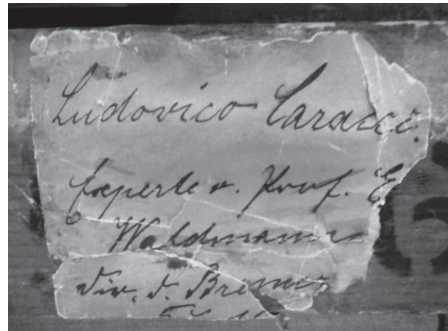 Ludovico Caracci.
Experte v. Prof. E.
Waldmann
Dir. d. Bremer